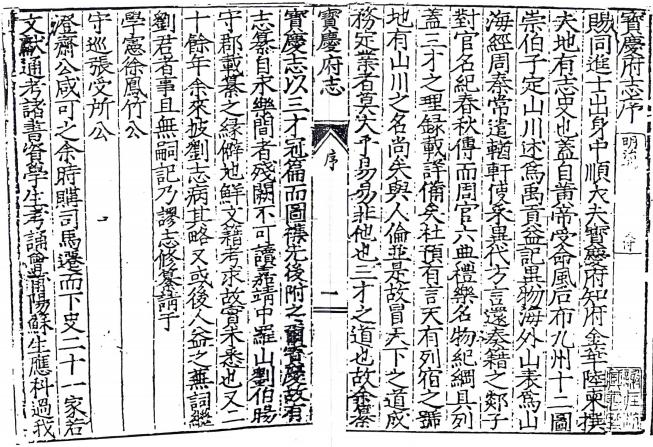 寶慶府志序
賜同進士出身中順大夫寶慶府知府金華陸柬撰
夫地有志史也蓋自黃帝受命風后布九州十二圖
崇伯子定山川述為禹貢益記異物海外山表為山
海經周秦常遣輶軒使采異代方言還奏籍之郯子
對官名紀春秋傳而周官六典禮樂名物紀綱具列
蓋三才之理録載詳備矣杜預有言天有列宿之號
地有山川之名尚矣與人倫並是故冒天下之道成
務定業者莫大乎易易非他也三才之道也故余纂
寶慶府志
序
一
寶慶志以三才冠篇而圖襍先後附之爾寶慶故有
志纂自永樂間者殘闕不可讀嘉靖中羅山劉伯賜
守郡載纂之緣僻地鮮文籍考求故實未悉也又二
十餘年余來披劉志病其略又或後人益之蕪詞繼
劉君者事且無嗣記乃謬志修纂請于
學憲徐鳳竹公
守巡張受所公
澄齋公咸可之余時購司馬遷而下史二十一家若
文獻通考諸書資學生考誦會莆陽蘇生應科過我